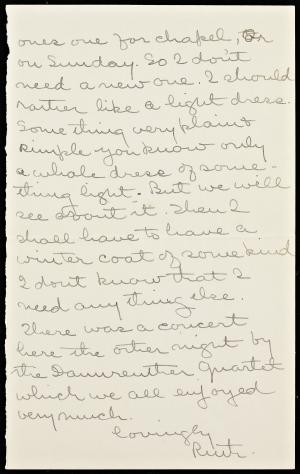 ones one for chapel, or
on Sunday. So I don't
need a new one. I should
rather like a light dress.
Something very plain &
simple you know only
a whole dress of some-
thing light. But we will
see about it. Then I
shall have to have a
winter coat of some kind
I dont know that I
need any thing else.
There was a concert
here the other night by
the Dannreuther Quartet
which we all enjoyed
very much.
Lovingly
Ruth.